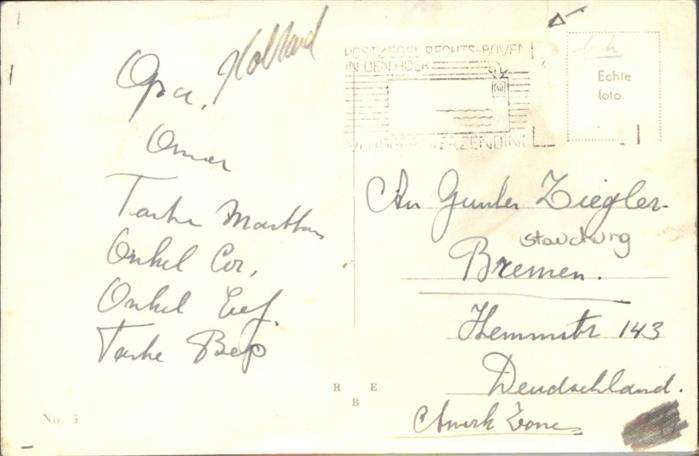 Opa, Holland
Oma
Tante Martha
Onkel Cor,
Onkel Eef.
Tante Bep
POSTZEGEL RECHTS-BOVEN
IN DEN HOEK
VERZENDING
Echte
foto.
An Gunter Ziegler.
Bremen.
Hemmstr 143
Deudschland.
Amerk Zone
R E
B
No.